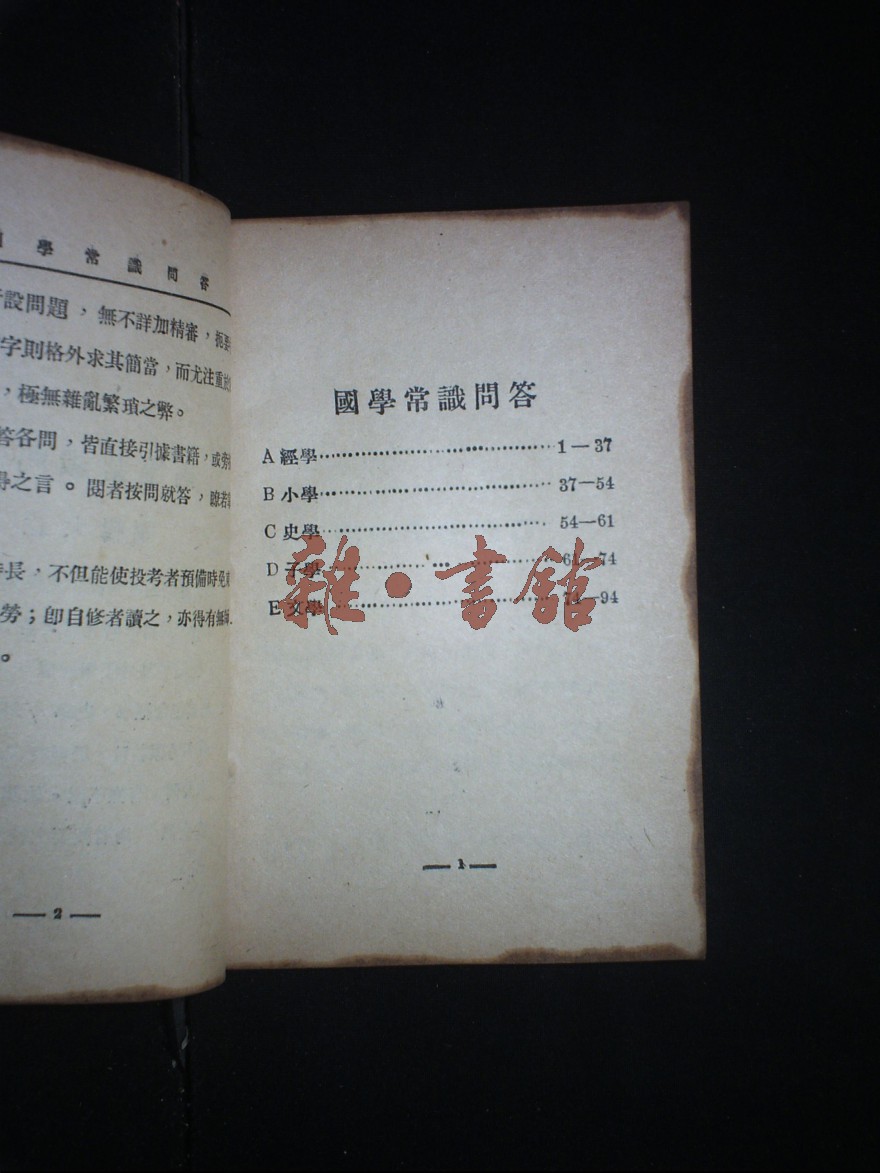 學常識問答
設問題，無不詳加精審，扼要
字則格外求其簡當，而尤注重於
，極無雜亂繁瑣之弊。
答各問，皆直接引據書籍，或旁
得之言。閱者按問就答，瞭若
長，不但能使投考者預備時免
勞；卽自修者讀之，亦得有無師
。
— 2 —
國學常識問答
A 經學 1—37
B 小學 37—54
C 史學 54—61
D 子學 61—74
E 文學 74—94
— 1 —
雜·書館